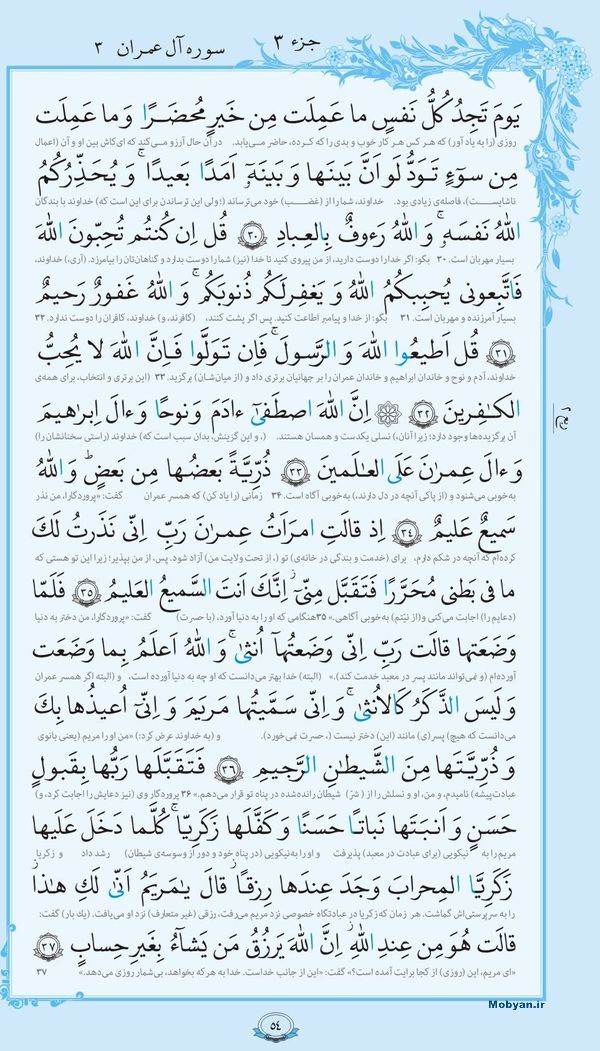 جزء ۳
سوره آل عمران ۳
يَومَ تَجِدُ كُلُّ نَفسٍ ما عَمِلَت مِن خَيرٍ مُحضَرًا وَما عَمِلَت
روزی (را به یاد آور) که هر کس هر کار خوب و بدی را که کرده، حاضر می‌یابد. در آن حال آرزو می‌کند که ای کاش بین او و آن (اعمال
مِن سوءٍ تَوَدُّ لَو اَنَّ بَينَها وَ بَينَهٓ اَمَدًا بَعيدًا ۗ وَ يُحَذِّرُكُمُ
ناشایست)، فاصله‌ی زیادی بود. خداوند، شما را از (غضب) خود می‌ترساند (؛ولی این ترساندن برای این است که) خداوند با بندگان
اللهُ نَفسَهٗ ۗ وَ اللهُ رَءوفٌ بِالعِبادِ ﴿۳۰﴾ قُل اِن كُنتُم تُحِبّونَ اللهَ
بسیار مهربان است. ۳۰ بگو: اگر خدا را دوست دارید، از من پیروی کنید تا خدا (نیز) شما را دوست بدارد و گناهان‌تان را بیامرزد. (آری،) خداوند،
فَاتَّبِعونی يُحبِبكُمُ اللهُ وَ يَغفِرلَكُم ذُنوبَكُم ۗ وَ اللهُ غَفورٌ رَحيمٌ
بسیار آمرزنده و مهربان است. ۳۱ بگو: از خدا و پیامبر اطاعت کنید. پس اگر پشت کنند، (کافرند، و) خداوند، کافران را دوست ندارد. ۳۲
﴿۳۱﴾ قُل اَطيعُوا اللهَ وَ الرَّسولَ ۖ فَاِن تَوَلَّوا فَاِنَّ اللهَ لا يُحِبُّ
خداوند، آدم و نوح و خاندان ابراهیم و خاندان عمران را بر جهانیان برتری داد و (از میان‌شان) برگزید. ۳۳ (این برتری و انتخاب، برای همه‌ی
الكٰفِرينَ ﴿۳۲﴾ اِنَّ اللهَ اصطَفیٰٓ ءادَمَ وَ نوحًا وَ ءالَ اِبرٰهيمَ
آن برگزیده‌ها وجود دارد؛ زیرا آنان،) نسلی یکدست و همسان هستند. (، و این گزینش، بدان سبب است که) خداوند (راستی سخنانشان را)
وَ ءالَ عِمرانَ عَلَى العٰلَمينَ ﴿۳۳﴾ ذُرِّيَّةً بَعضُها مِن بَعضٍ ۗ وَ اللهُ
به‌خوبی می‌شنود و (از پاکی آنچه در دل دارند،) به‌خوبی آگاه است. ۳۴ زمانی (را یاد کن) که همسر عمران گفت: «پروردگارا، من نذر
سَميعٌ عَليمٌ ﴿۳۴﴾ اِذ قالَتِ امرَاَتُ عِمرانَ رَبِّ اِنّی نَذَرتُ لَكَ
کرده‌ام که آنچه در شکم دارم، برای (خدمت و بندگی در خانه‌ی) تو (، از تحت ولایت من) آزاد شود. پس، از من بپذیر؛ زیرا این تو هستی که
ما فی بَطنی مُحَرَّرًا فَتَقَبَّل مِنّی ۖ اِنَّكَ اَنتَ السَّميعُ العَليمُ ﴿۳۵﴾ فَلَمّا
(دعایم را) اجابت می‌کنی و (از نیّتم) به‌خوبی آگاهی.» ۳۵ هنگامی که او را به دنیا آورد، (با حسرت) گفت: «پروردگارا، من دختر به دنیا
وَضَعَتها قالَت رَبِّ اِنّی وَضَعتُهآ اُنثیٰ ۖ وَ اللهُ اَعلَمُ بِما وَضَعَت
آورده‌ام (و نمی‌تواند مانند پسر در معبد خدمت کند).» (البته) خدا بهتر می‌دانست که او چه به دنیا آورده است، و (البته اگر همسر عمران
وَ لَيسَ الذَّكَرُ كَالاُنثیٰ ۖ وَ اِنّی سَمَّيتُها مَريَمَ وَ اِنّیٓ اُعيذُها بِكَ
می‌دانست که هیچ) پسر(ی) مانند (این) دختر نیست (، حسرت نمی‌خورد). و (به خداوند عرض کرد:) «من او را مریم (یعنی بانوی
وَ ذُرِّيَّتَها مِنَ الشَّيطٰنِ الرَّجيمِ ﴿۳۶﴾ فَتَقَبَّلَها رَبُّها بِقَبولٍ
عبادت‌پیشه) نامیدم، و من، او و نسلش را از (شرّ) شیطان رانده‌شده در پناه تو قرار می‌دهم.» ۳۶ پروردگار وی (نیز دعایش را اجابت کرد، و)
حَسَنٍ وَ اَنبَتَها نَباتًا حَسَنًا وَ كَفَّلَها زَكَرِيّا ۖ كُلَّما دَخَلَ عَلَيها
مریم را به نیکویی (برای عبادت در معبد) پذیرفت و او را به‌نیکویی (در پناه خود و دور از وسوسه‌ی شیطان) رشد داد و زکریا
زَكَرِيَّا المِحرابَ وَجَدَ عِندَها رِزقًا ۖ قالَ يٰمَريَمُ اَنّیٰ لَكِ هٰذا
را به سرپرستی‌اش گماشت. هر زمان که زکریا در عبادتگاه خصوصی نزد مریم می‌رفت، رزقی (غیر متعارف) نزد او می‌یافت. (یک بار) گفت:
قالَت هُوَ مِن عِندِ اللهِ ۖ اِنَّ اللهَ يَرزُقُ مَن يَشآءُ بِغَيرِ حِسابٍ ﴿۳۷﴾
«ای مریم، این (روزی) از کجا برایت آمده است؟» گفت: «این از جانب خداست. خدا به هر که بخواهد، بی‌شمار روزی می‌دهد.» ۳۷
۵۴
Mobyan.ir